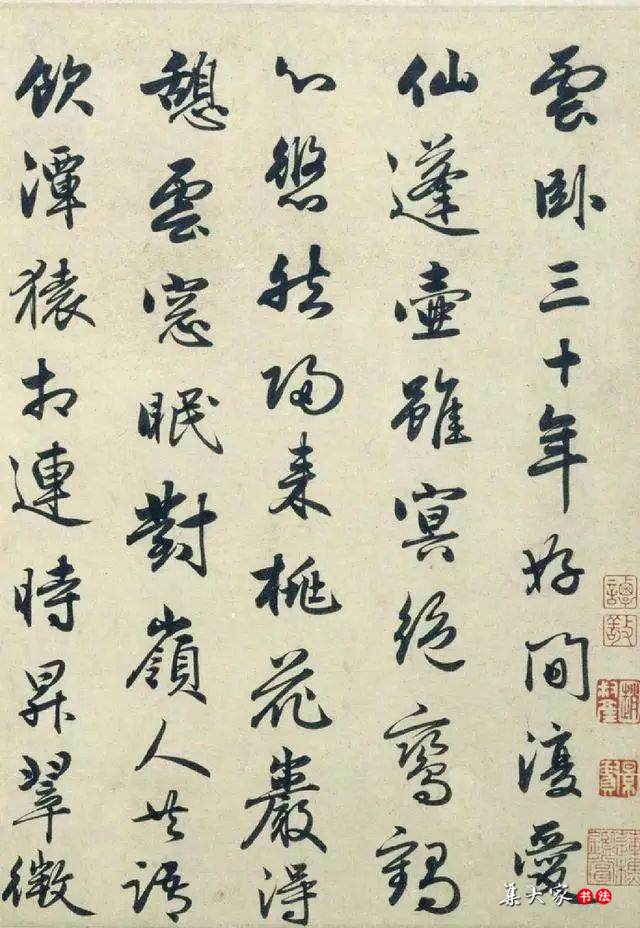 雲卧三十年好間復愛
仙蓬壺雖冥絕鸞鶴
心悠然歸来桃花巖得
憩雲窓眠對嶺人共語
飲潭猿相連時昇翠微
集大家书法